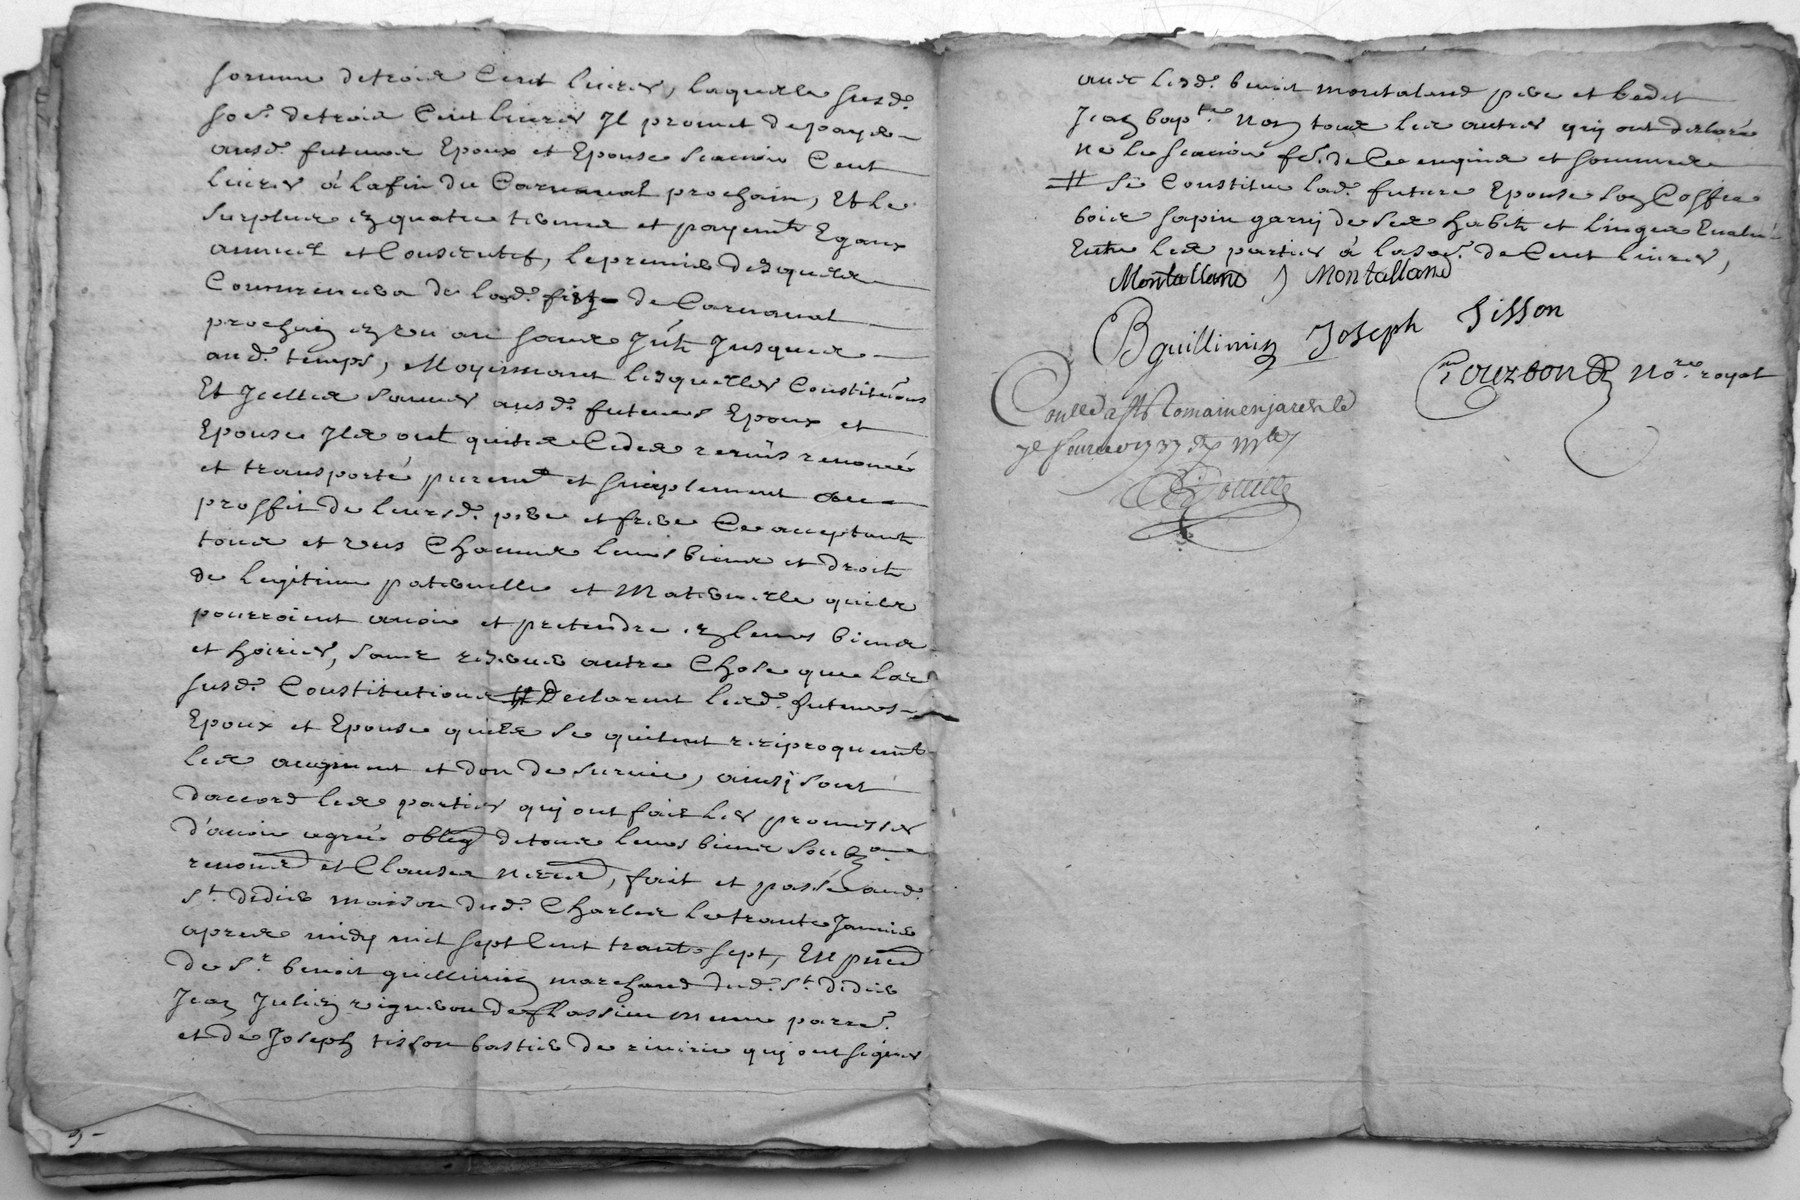 somme de trois Cent livres, laquelle susd.e
so.e de trois Cent livres Il promet de payer
ausd. futurs Epoux et Epouse scavoir Cent
livres à la fin du Carnaval prochain, Et le
surplus en quatre termes et payemts Egaux
annuels et Consecutifs, le premier desquels
Commencera de lad.e feste de Carnaval
prochain en un an sans Jnts Jusques
aud. temps, Moyennant lesquelles Constitutions
Et Jcelles sommes ausd. futurs Epoux et
Epouse Ils ont quitté Cedé remis renoncé
et transporté purem.t et simplement au
proffit de leursd. pere et frere Ce acceptant
tous et uns Chacuns leurs biens et droits
de legitime paternelle et Maternelle quils
pourroient avoir et pretendre en leurs biens
et hoiries, sans reserver autre Chose que las
susd.e Constitutions # Declarent lesd. futurs
Epoux et Epouse quils se quitent reciproquemt
les augment et don de survie, ainsj sont
daccord les parties quj ont fait les promesses
d'avoir agreé oblig. de tous leurs biens soub.ons
renon.ns et Clauses necess., fait et passé aud.
St. Didier maison dud. Charles le trante Janvier
apres midy mil sept Cent trante sept, En pnce
de Sr. benoit guillimin marchand dud. St. didier
Jean Julien vigneron de flassieu mme parre.
et de Joseph tisson bastier de riverie quj ont signes
avec lesd. benoit montaland pere et cadet
Jean bapte. Non tous les autres quj ont declaré
ne le scavoir fe. de Ce enquis et sommes
# Se Constitue lad.e future Epouse son Coffre
bois sapin garnj de ses habits et linges Evalué
Entre les parties à la so.e de Cent livres,
Montalland J Montalland
B guillimin Joseph Tisson
Courbon Nore. royal